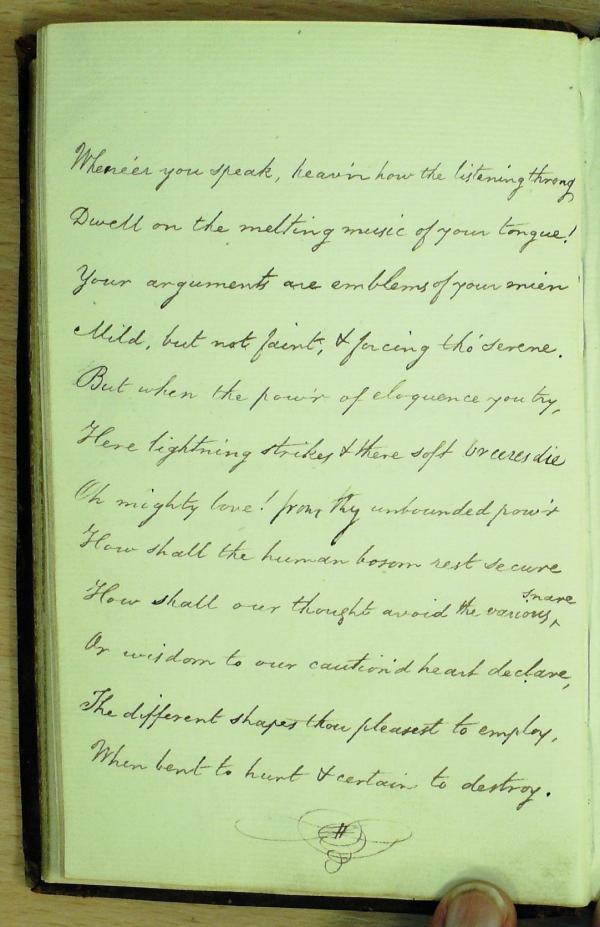 Whene'er you speak, heav'n how the listening throng
Dwell on the melting music of your tongue!
Your arguments are emblems of your mien
Mild, but not faint, & forcing tho' serene.
But when the pow'r of eloquence you try,
Here lightning strikes & there soft breezes die
Oh mighty love! from thy unbounded pow'r
How shall the human bosom rest secure
How shall our thought avoid the various, snare
Or wisdom to our caution'd heart declare,
The different shapes thou pleasest to employ,
When bent to hurt & certain to destroy.